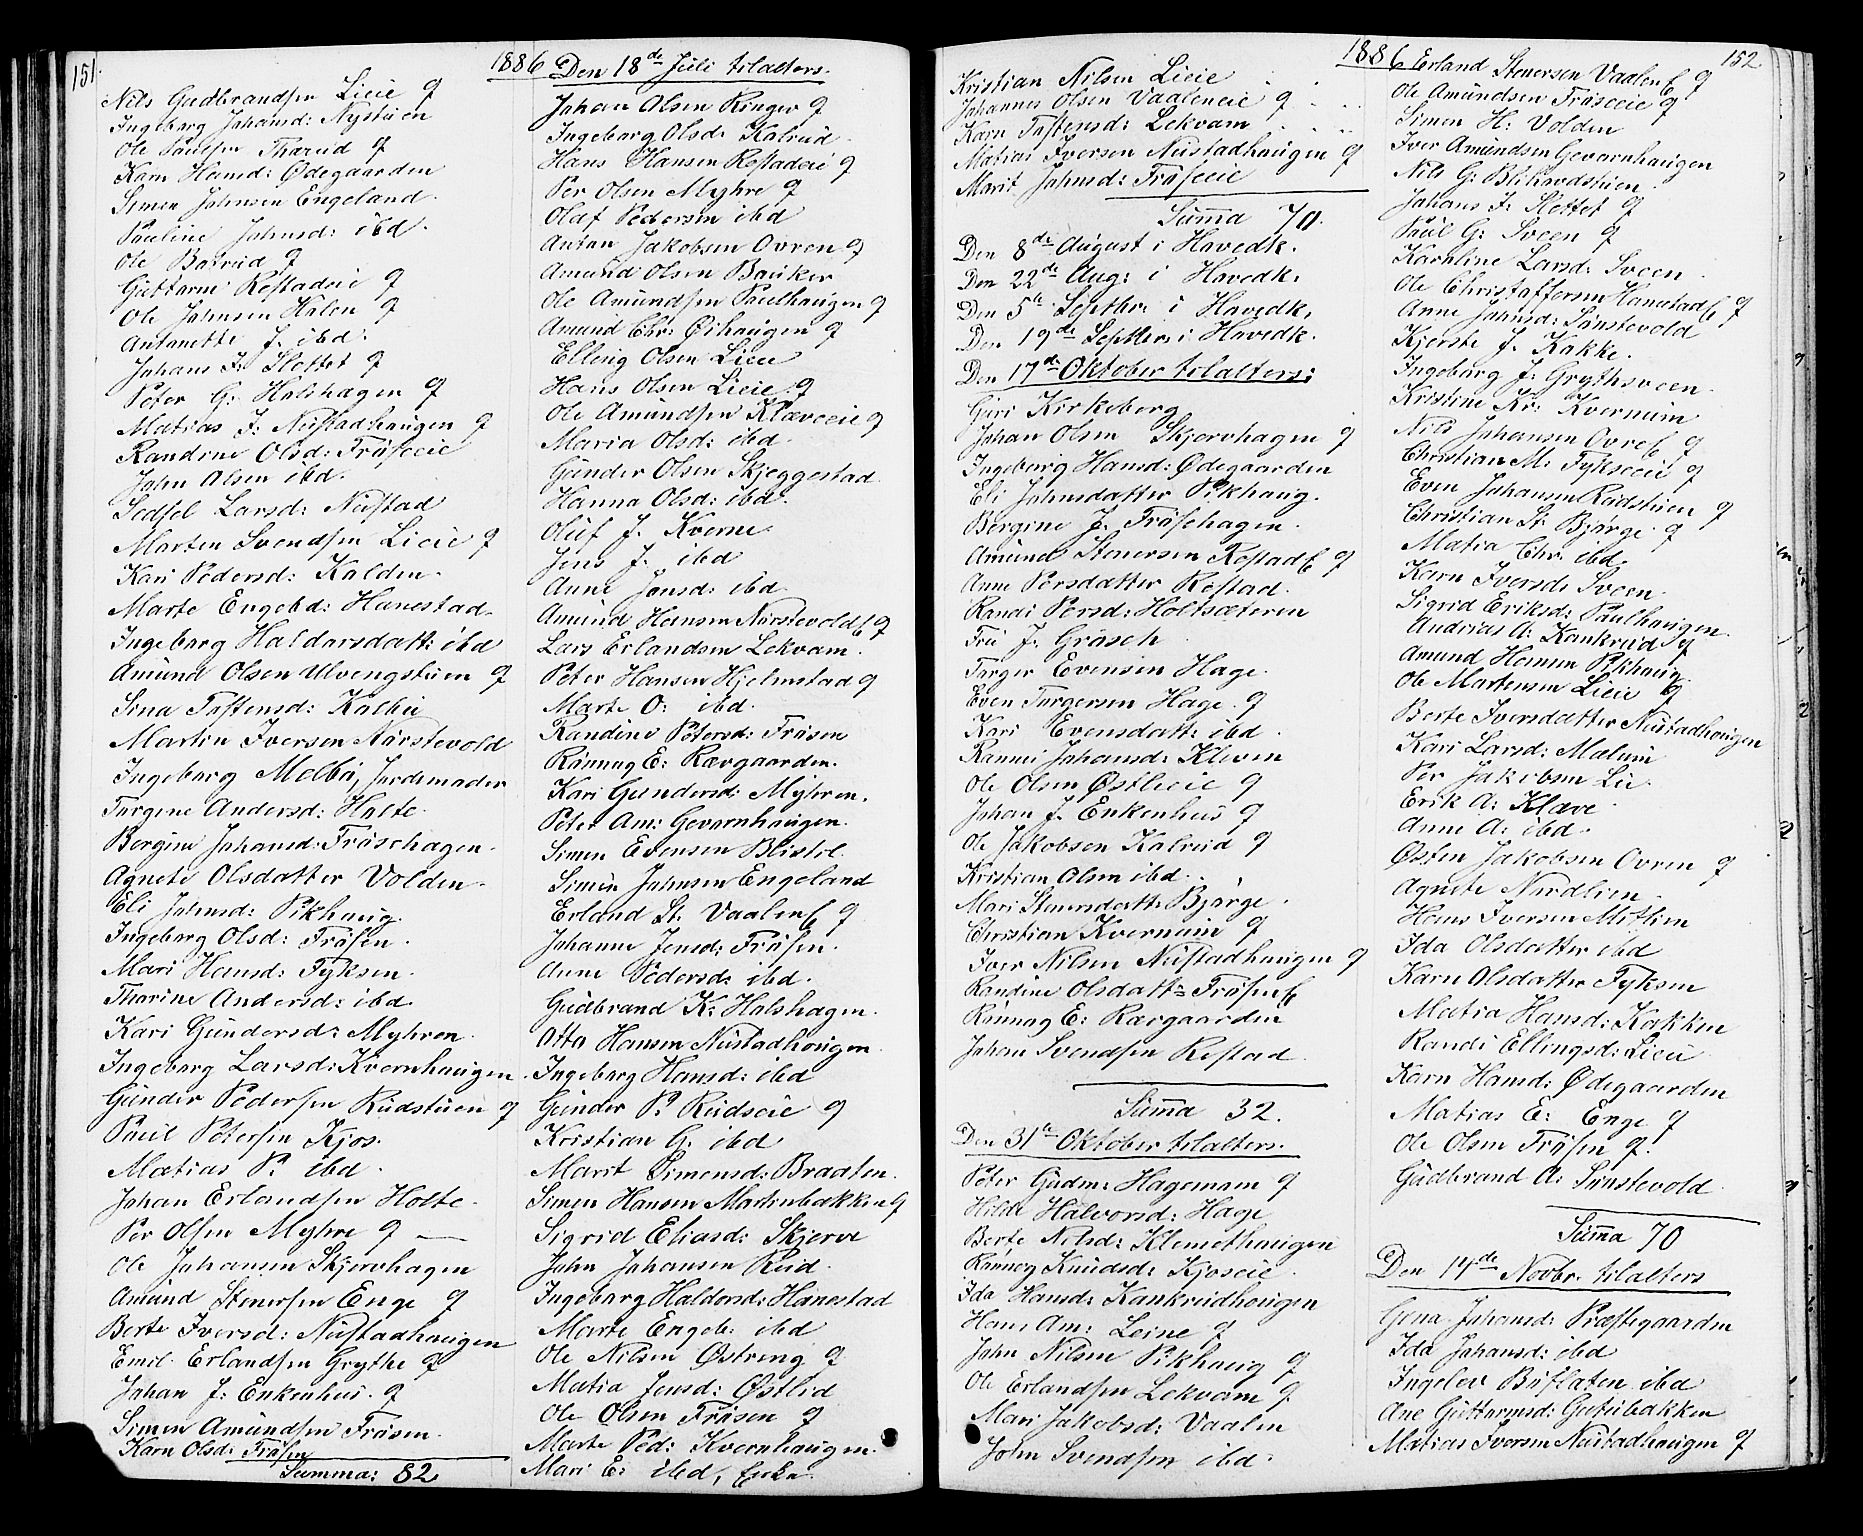 151.
1886
Nils Gudbrandsen Lieie q
Ingeborg Johansd: Nystuen
Ole Paulsen Tharud q
Karn Hansd: Ødegaarden
Simen Johnsen Engeland.
Pauline Johnsd: ibd.
Ole Botrud q
Guttorm Rostadeie q
Ole Johnsen Kalen q
Antonette J. ibd.
Johans J: Slottet q
Peter G: Holshagen q
Matias J: Nustadhaugen q
Randine Olsd: Fröseeie
John Olsen ibd.
Sedsel Larsd: Nustad
Marten Svendsen Lieie q
Kari Pedersd: Kalden.
Marte Engebd: Hanestad.
Ingeborg Haldorsdatt: ibd
Amund Olsen Ulvengstuen q
Sina Tostensd: Kalbu
Martin Iversen Nörstevold
Ingeborg Melbö, Jordemoder
Torgine Andersd: Holte.
Bergine Johansd: Fröschagen.
Agnete Olsdatter Volden.
Eli Johnsd: Pikhaug.
Ingeborg Olsd: Frösen.
Mari Hansd: Fyksen.
Thorine Andersd: ibd.
Kari Gundersd: Myhren.
Ingeborg Larsd: Kvernhaugen.
Gunder Pedersen Rudstuen q
Paul Petersen Kjos.
Matias P. ibd.
Johan Erlandsen Holte.
Per Olsen Myhre q
Ole Johansen Skjervhagen
Amund Stenersen Enge q
Berte Iversd: Nustadhaugen
Emil Erlandsen Grythe q
Johan J: Enkenhus. q
Simen Amundsen Frösen.
Karn Olsd: Frösen
Summa: 82
Den 18de Juli tilalters.
Johan Olsen Ringer q
Ingeborg Olsd: Kalrud.
Hans Hansen Rostadeie q
Per Olsen Myhre q
Olaf Pedersen ibd
Anton Jakobsen Ovren q
Amund Olsen Bauker
Ole Amundsen Paulhaugen q
Amund Chr: Öihaugen q
Elling Olsen Lieie
Hans Olsen Lieie q
Ole Amundsen Klæveeie q
Maria Olsd: ibd.
Gunder Olsen Skjeggestad.
Hanna Olsd: ibd.
Oluf J. Kverne
Jens J. ibd
Anne Jonsd: ibd.
Amund Hansen Nörstevold q
Lars Erlandsen Lekvam.
Peter Hansen Hjelmstad q
Marte O: ibd.
Randine Petersd: Frösen
Rönnug E: Rævgaarden.
Kari Gundersd: Myhren.
Peter Am: Gevarnhaugen.
Simen Evensen Blistil.
Simen Johnsen Engeland
Erland St. Vaalen q
Johanne Jensd: Frösen.
Anne Pedersd: ibd.
Gudbrand K: Holshagen.
Otto Hansen Nustadhougen
Ingeborg Hansd: ibd
Gunder P. Rudseie q
Kristian G. ibd
Marit Simensd: Braaten.
Simen Hansen Martinbakken q
Sigrid Eliasd: Skjerve
John Johansen Rud.
Ingeborg Haldorsd: Hanestad
Marte Engeb: ibd
Ole Nilsen Østreng q
Matia Jensd: Østlid
Ole Olsen Frösen q
Marte Ped: Kvernhaugen.
Mari E: ibd, Enke.
1886
152
Kristian Nilsen Lieie
Johannes Olsen Vaaleneie q
Karn Tostensd: Lekvam
Matias Iversen Nustadhaugen q
Marit Johnsd: Fröseeie
Summa 70.
Den 8de August i Havedk.
Den 22de Aug: i Havedk.
Den 5te Septbr. i Havedk.
Den 19de Septbr. i Havedk.
Den 17de Oktober tilalters:
Guri Kirkeberg
Johan Olsen Skjervhagen q
Ingeborg Hansd: Ødegaarden
Eli Johnsdatter Pikhaug.
Bergine J. Fröschagen.
Amund Stenersen Rostad q
Anne Persdatter Rostad.
Randi Persd: Holtsæteren
Fru J. Grösch
Torger Evensen Hage.
Even Torgersen Hage. q
Kari Evensdatt: ibd.
Rannei Johansd: Kleven
Ole Olsen Østlieie q
Johan J. Enkenhus q
Ole Jakobsen Kalrud q
Kristian Olsen ibd.
Mari Stenersdatt: Bjørge.
Christian Kvernum q
Iver Nilsen Nustadhaugen q
Randine Olsdatt: Frösen
Rönnug E: Rævgaarden
Johan Svendsen Rostad.
Summa 32.
Den 31te Oktober tilalters.
Peter Gudm: Hagemam q
Hilda Halvorsd: Hage
Berte Nilsd: Klemethaugen
Rönnog Knudsd: Kjoseie.
Ida Hansd: Kankrudhougen
Hans Am: Leine q
John Nilsen Pikhaug q
Ole Erlandsen Lekvam q
Mari Jakobsd: Vaalen
John Svendsen ibd.
Erland Stenersen Vaalen q
Ole Amundsen Fröseeie q
Simen H: Volden
Iver Amundsen Gevarnhaugen
Nils G: Blikardstuen.
Johans J: Slottet q
Paul G: Sveen q
Karoline Larsd: Sveen.
Ole Christoffersen Hanestad q
Anne Johnsd: Sönstevold
Kjerste J. Kakke.
Ingeborg J: Grythsveen.
Kristine Kr: Kvernum
Nils Johansen Ovre q
Christian M: Fykseeie q
Even Johansen Rudstuen q
Christian St. Bjørge q
Matia Chr. ibd.
Karn Iversd: Sveen.
Sigrid Eriksd: Paulhaugen.
Andreas A: Kankrud q
Amund Hansen Pikhaug.
Ole Martensen Lieie q
Berte Iversdatter Nustadhougen
Kari Larsd: Melum
Per Jakobsen Lie.
Erik A: Klæve.
Anne A: ibd.
Østen Jakobsen Ovren q
Agnete Nordlien.
Hans Iversen Mitlien
Ida Olsdatter ibd
Karn Olsdatter Fyksen
Matia Hansd: Kakken
Randi Ellingsd: Lieie
Karn Hansd: Ødegaarden
Matias E: Enge q
Ole Olsen Frösen q.
Gudbrand A: Sönstevold.
Summa 70
Den 14de Novbr. tilalters
Gena Johansd: Præstegaarden
Ida Johansd: ibd
Ingelev Buflaten ibd
Ane Guttormsd: Gutubakken
Matias Iversen Nustadhaugen q